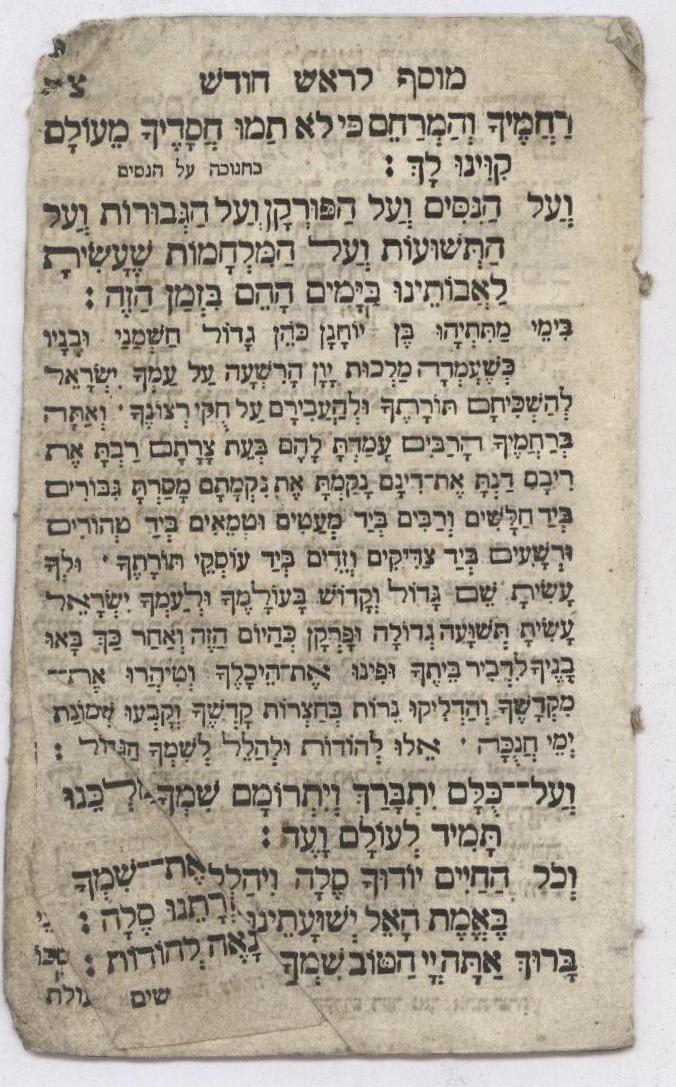 מוסף לראש חודש
רַחֲמֶיךָ וְהַמְרַחֵם כִּי לֹא תַמּוּ חֲסָדֶיךָ מֵעוֹלָם
קִוִּינוּ לָךְ :
בחנוכה על הנסים
וְעַל הַנִּסִּים וְעַל הַפּוּרְקָן וְעַל הַגְּבוּרוֹת וְעַל
הַתְּשׁוּעוֹת וְעַל הַמִּלְחָמוֹת שֶׁעָשִׂיתָ
לַאֲבוֹתֵינוּ בַּיָּמִים הָהֵם בִּזְמַן הַזֶּה :
בִּימֵי מַתִּתְיָהוּ בֶּן יוֹחָנָן כֹּהֵן גָּדוֹל חַשְׁמֹנַי וּבָנָיו
כְּשֶׁעָמְדָה מַלְכוּת יָוָן הָרְשָׁעָה עַל עַמְּךָ יִשְׂרָאֵל
לְהַשְׁכִּיחָם תּוֹרָתֶךָ וּלְהַעֲבִירָם עַל חֻקֵּי רְצוֹנֶךָ · וְאַתָּה
בְּרַחֲמֶיךָ הָרַבִּים עָמַדְתָּ לָהֶם בְּעֵת צָרָתָם רַבְתָּ אֶת
רִיבָם דַּנְתָּ אֶת־דִּינָם נָקַמְתָּ אֶת נִקְמָתָם מָסַרְתָּ גִּבּוֹרִים
בְּיַד חַלָּשִׁים וְרַבִּים בְּיַד מְעַטִּים וּטְמֵאִים בְּיַד טְהוֹרִים
וּרְשָׁעִים בְּיַד צַדִּיקִים וְזֵדִים בְּיַד עוֹסְקֵי תּוֹרָתֶךָ · וּלְךָ
עָשִׂיתָ שֵׁם גָּדוֹל וְקָדוֹשׁ בָּעוֹלָמֶךָ וּלְעַמְּךָ יִשְׂרָאֵל
עָשִׂיתָ תְּשׁוּעָה גְדוֹלָה וּפֻרְקָן כְּהַיּוֹם הַזֶּה וְאַחַר כַּךְ בָּאוּ
בָנֶיךָ לִדְבִיר בֵּיתֶךָ וּפִינּוּ אֶת־הֵיכָלֶךָ וְטִיהֲרוּ אֶת־
מִקְדָּשֶׁךָ וְהִדְלִיקוּ נֵרוֹת בְּחַצְרוֹת קָדְשֶׁךָ וְקָבְעוּ שְׁמוֹנַת
יְמֵי חֲנֻכָּה · אֵלּוּ לְהוֹדוֹת וּלְהַלֵּל לְשִׁמְךָ הַגָּדוֹל :
וְעַל־כֻּלָּם יִתְבָּרַךְ וְיִתְרוֹמָם שִׁמְךָ מַלְכֵּנוּ
תָּמִיד לְעוֹלָם וָעֶד :
וְכֹל הַחַיִּים יוֹדוּךָ סֶּלָה וִיהַלְלוּ אֶת־שִׁמְךָ
בֶּאֱמֶת הָאֵל יְשׁוּעָתֵינוּ וְעֶזְרָתֵנוּ סֶלָה :
בָּרוּךְ אַתָּה יְיָ הַטּוֹב שִׁמְךָ נָאֶה לְהוֹדוֹת :
שים